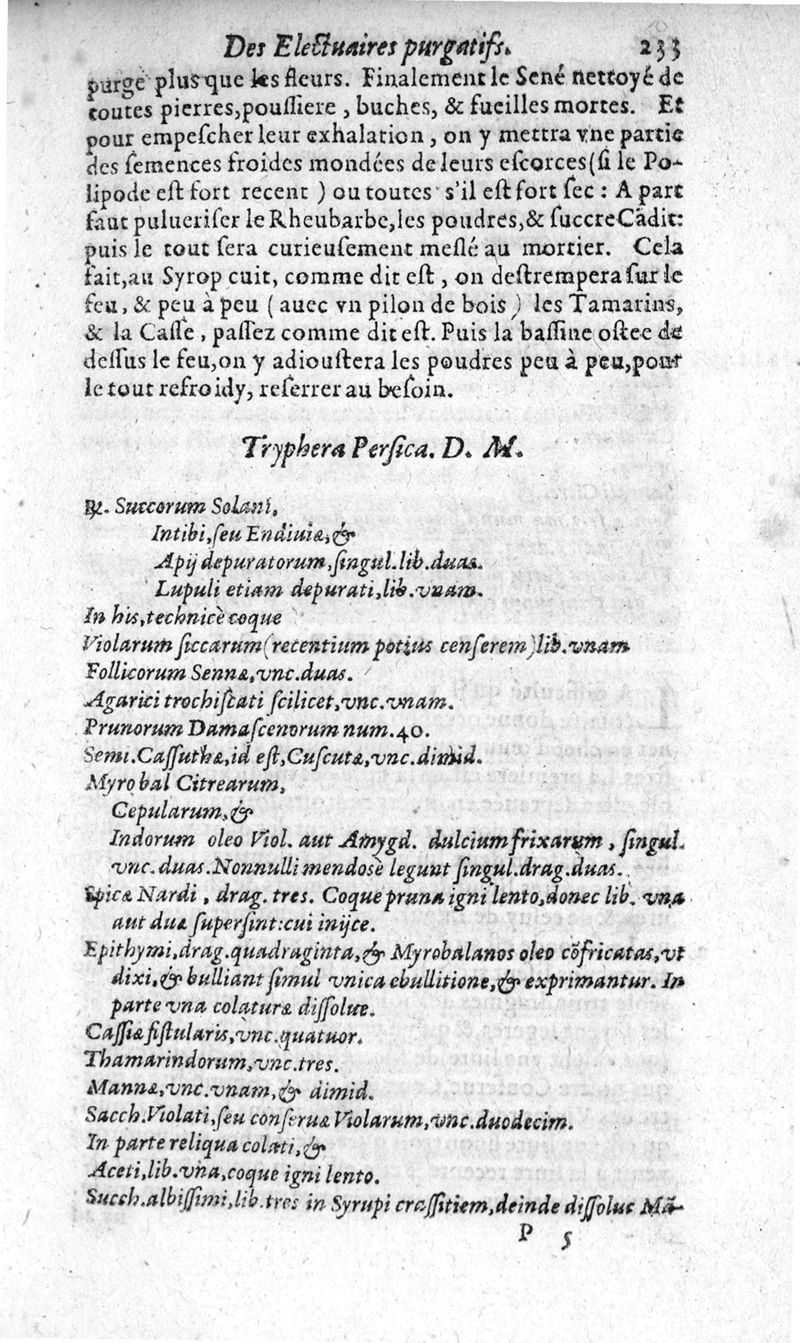 Des Electuaires purgatifs. 233
purge plus que les fleurs. Finalement le Sené nettoyé de
toutes pierres,poußiere , buches, & fueilles mortes. Et
pour empeſcher leur exhalation , on y mettra vne partie
des ſemences froides mondées de leurs eſcorces(ſi le Po-
lipode eſt fort recent ) ou toutes s'il eſt fort ſec : A part
faut pulueriſer le Rheubarbe,les poudres,& ſuccre Cãdit:
puis le tout ſera curieuſement meſlé au mortier. Cela
fait,au Syrop cuit, comme dit eſt , on deſtrempera ſur le
feu, & peu à peu ( auec vn pilon de bois ) les Tamarins,
& la Caſſe , paſſez comme dit eſt. Puis la baſſine oſtee de
deſſus le feu,on y adiouſtera les poudres peu à peu,pour
le tout refroidy, reſerrer au beſoin.
Tryphera Perſica. D. M.
℞. Succorum Solani,
Intibi,ſeu Endiuiæ,&
Apij depuratorum,ſingul.lib.duas.
Lupuli etiam depurati,lib.vnam.
In his,technicè coque
Violarum ſiccarum(recentium potius cenſerem)lib.vnam
Follicorum Sennæ,vnc.duas.
Agarici trochiſcati ſcilicet,vnc.vnam.
Prunorum Damaſcenorum num.40.
Semi.Caſſuthæ,id eſt,Cuſcutæ,vnc.dimid.
Myrobal Citrearum,
Cepularum,&
Indorum oleo Viol. aut Amygd. dulcium frixarum , ſingul.
vnc.duas.Nonnulli mendosè legunt ſingul.drag.duas.
Spicæ Nardi , drag. tres. Coque pruna igni lento,donec lib. vna
aut duæ ſuperſint:cui inijce.
Epithymi,drag.quadraginta,& Myrobalanos oleo cõfricatas,vt
dixi,& bulliant ſimul vnica ebullitione,& exprimantur. In
parte vna colaturæ diſſolue.
Caſſiæ fiſtularis,vnc.quatuor.
Thamarindorum,vnc.tres.
Mannæ,vnc.vnam,& dimid.
Sacch.Violati,ſeu conſeruæ Violarum,vnc.duodecim.
In parte reliqua colati,&
Aceti,lib.vna,coque igni lento.
Succh.albiſſimi,lib.tres in Syrupi craſſitiem,deinde diſſolue Mã-
P 5